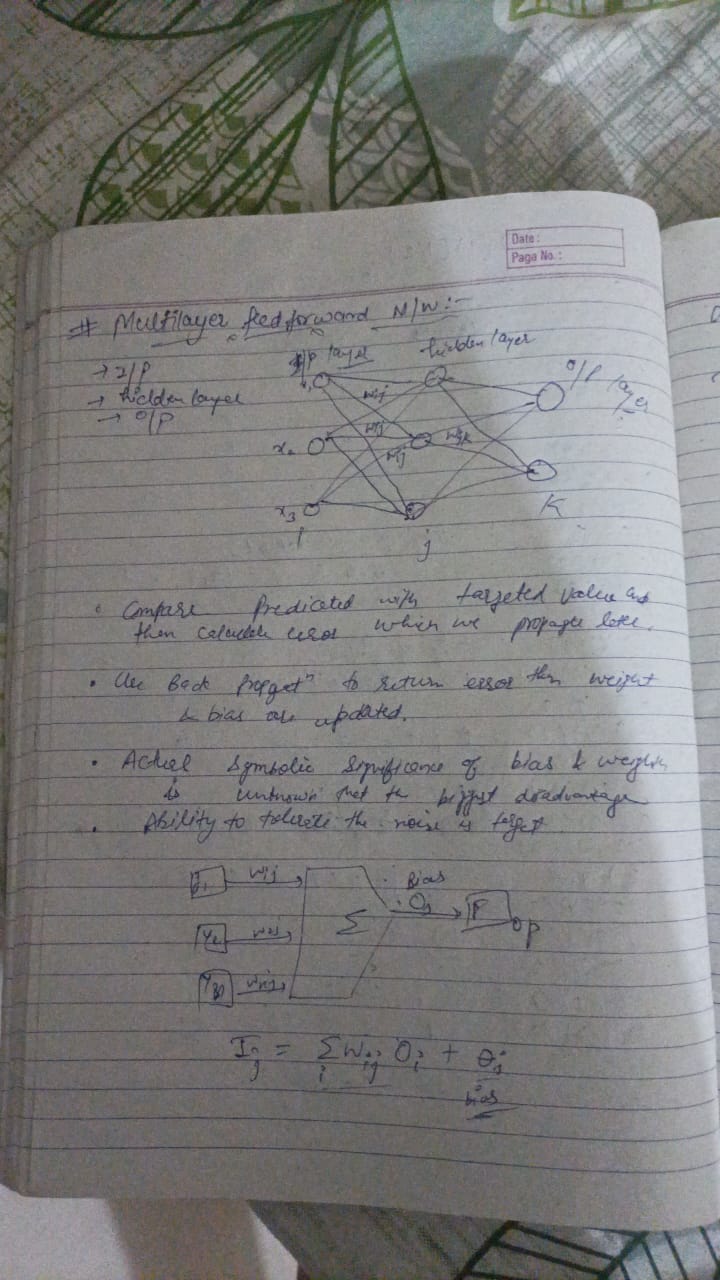 Date :
Page No. :
# Multilayer feed forward N/W :-
→ I/P
→ hidden layer
→ O/P
I/P layer
hidden layer
O/P layer
x1
wij
x2
wij
wjk
wij
x3
i
j
K
• Compare Predicated with targeted value and
then calculate error which we
• Use Back to return error then weight
& bias are updated.
• Symbolic Significance of bias & weights
is unknown that the biggest disadvantage
• Ability to the noise is
wij
Bias
Θj
Σ
F
op
Ij = Σi wij Oi + θj
bias